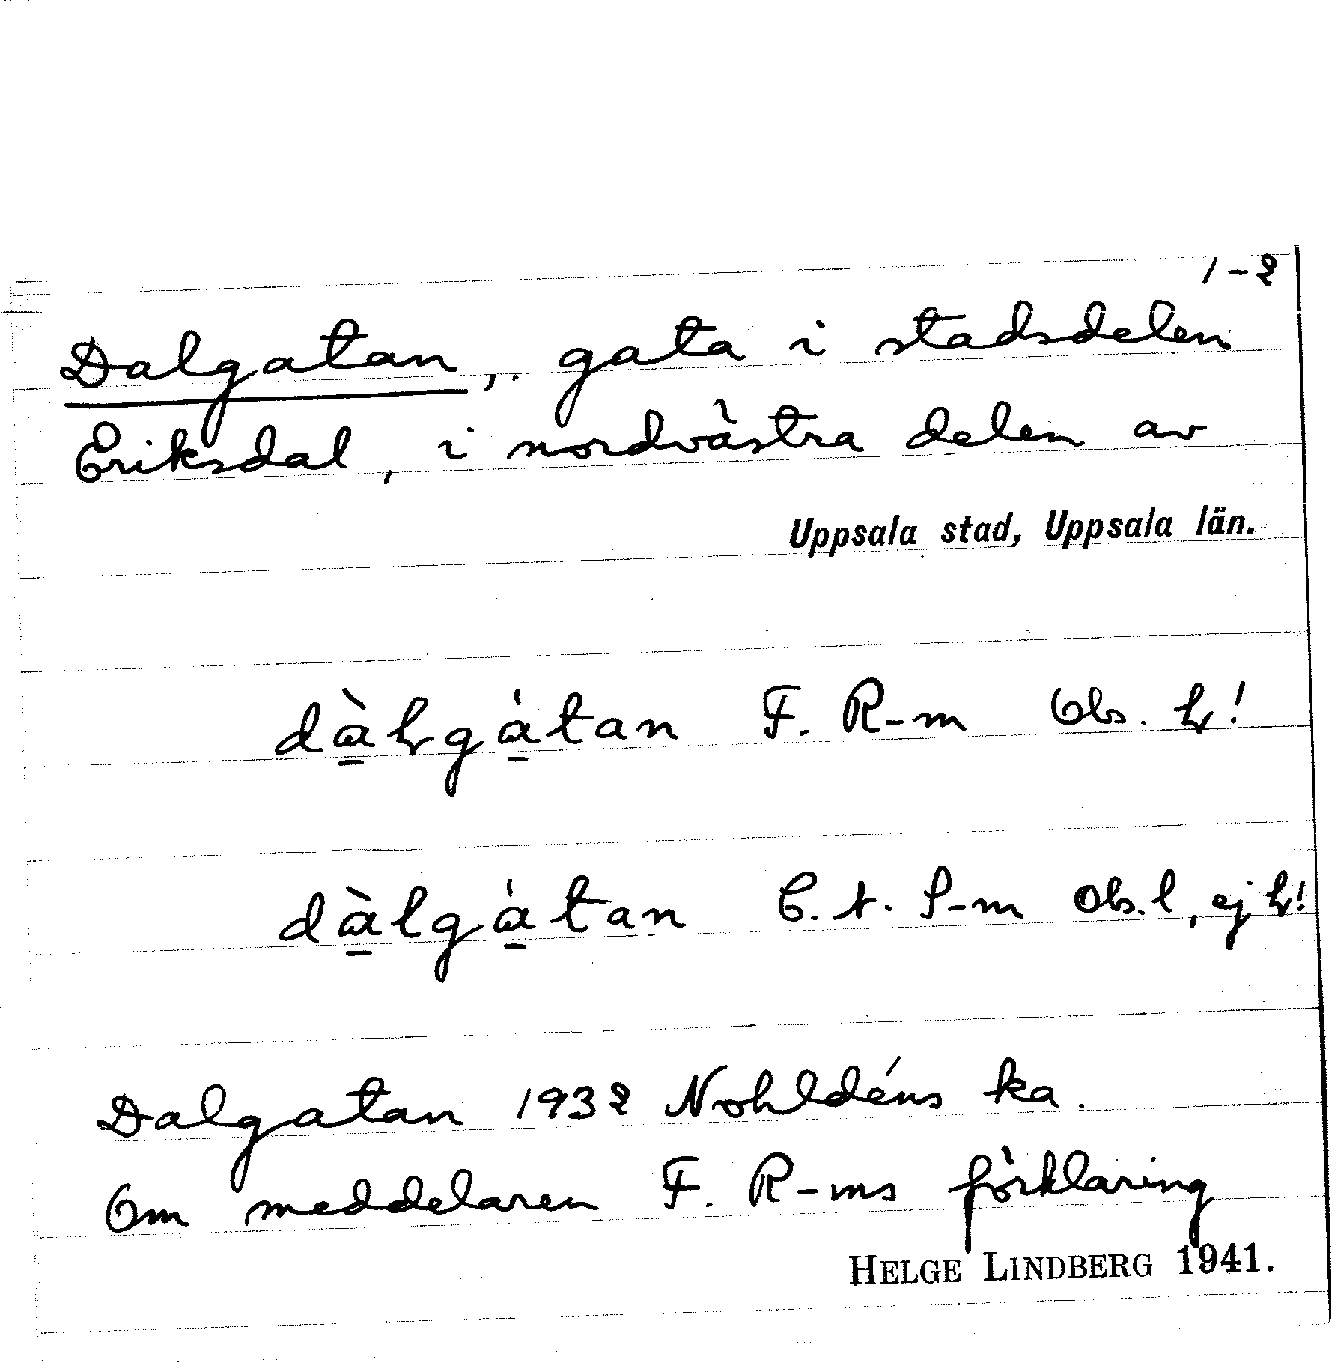 1-2
Dalgatan, gata i stadsdelen
Eriksdal, i nordvästra delen av
Uppsala stad, Uppsala län.
dàlgátan F. R-m Obs. !
dàlgátan C. A. S-m Obs. l, ej !
Dalgatan 1932 Nohldéns ka.
Om meddelaren F. R-ms förklaring
HELGE LINDBERG 1941.